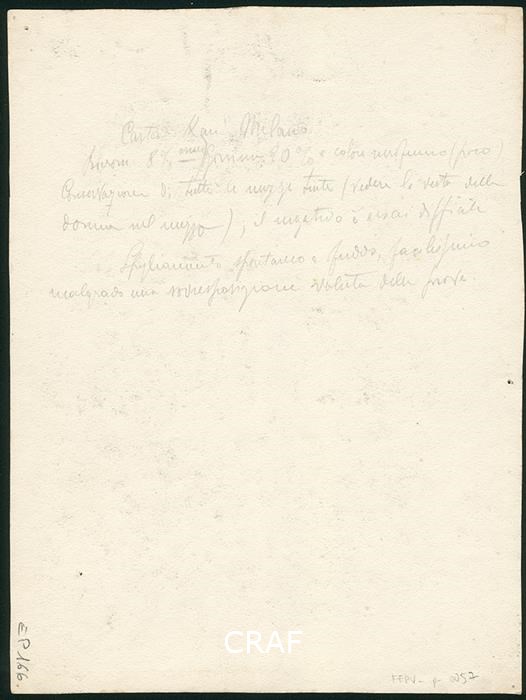 Carta Milano
8% 20% e colore (poco)
Conservazione di tutte le mezze tinte (vedere la veste della
donna nel mezzo), il negativo è assai difficile
Spogliamento spontaneo e freddo, facilissimo
malgrado una sovresposizione voluta della prova.
EP 166
CRAF